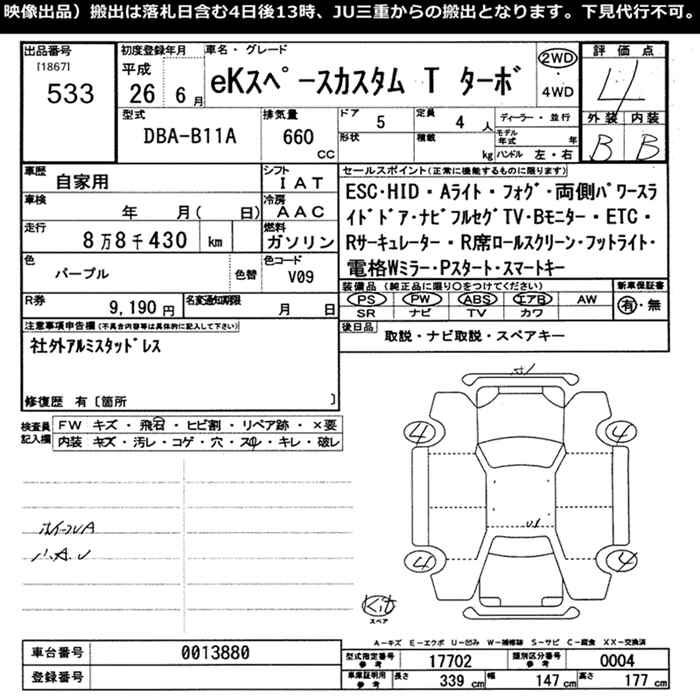 映像出品）搬出は落札日含む4日後13時、JU三重からの搬出となります。下見代行不可。
出品番号
[1867]
533
初度登録年月
平成
26 6月
車名・グレード
eKスペースカスタム T ターボ
2WD
・
4WD
評価点
4
外装 内装
B B
型式
DBA-B11A
排気量
660
cc
ドア 5
形状
定員 4人
積載 kg
ディーラー・並行
モデル年式 年
ハンドル 左・右
車歴
自家用
シフト
IAT
車検
年 月( 日)
冷房
AAC
走行
8万8千430 km
燃料
ガソリン
色
パープル
色替
色コード
V09
R券
9,190円
名変通知期限
月 日
セールスポイント(正常に機能するものに限ります)
ESC・HID・Aライト・フォグ・両側パワースラ
イドドア・ナビフルセグTV・Bモニター・ETC・
Rサーキュレーター・R席ロールスクリーン・フットライト・
電格Wミラー・Pスタート・スマートキー
装備品(純正品に限り○をつけてください)
PS PW ABS エアB AW
SR ナビ TV カワ
新車保証書
有・無
後日品
取説・ナビ取説・スペアキー
注意事項申告欄(不具合内容等は具体的に記入して下さい)
社外アルミスタッドレス
修復歴 有〔箇所 〕
検査員
記入欄
FW キズ・飛石・ヒビ割・リペア跡・×要
内装 キズ・汚レ・コゲ・穴・スレ・キレ・破レ
ホイールA
A1
4 4
U1
4 4
Kit
スペア
A-キズ E-エクボ U-凹み W-補修跡 S-サビ C-腐食 XX-交換済
車台番号
0013880
登録番号
型式指定番号
参考
17702
類別区分番号
参考
0004
車庫証明用
参考
長さ 339cm 幅 147cm 高さ 177cm